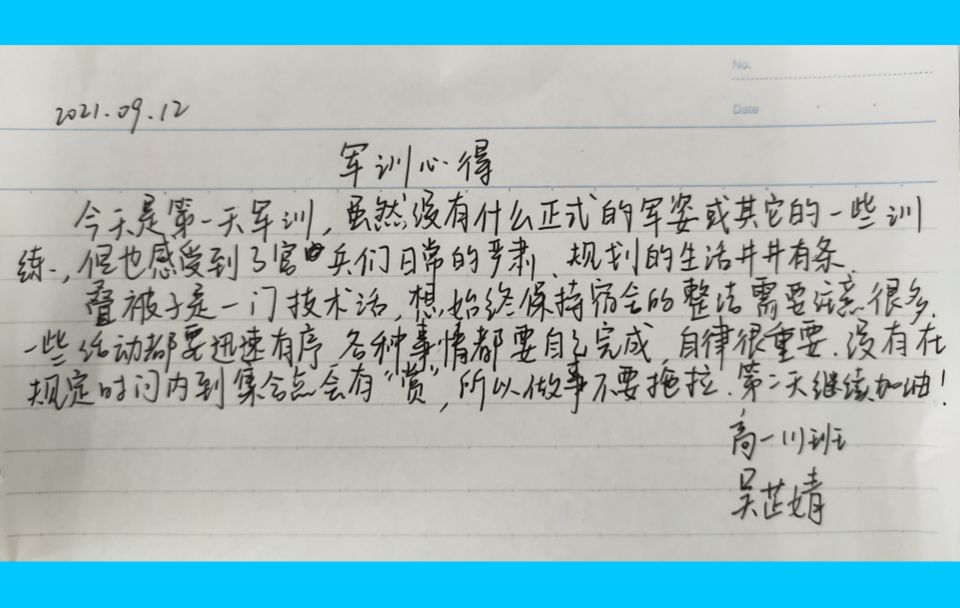 No.
2021.09.12
Date
军训心得
今天是第一天军训,虽然没有什么正式的军姿或其它的一些训
练,但也感受到了官兵们日常的严肃、规划的生活井井有条.
叠被子是一门技术活,想始终保持宿舍的整洁需要注意很多.
一些活动都要迅速有序.各种事情都要自己完成,自律很重要.没有在
规定时间内到集合点会有“赏”,所以做事不要拖拉.第二天继续加油!
高一(1)班
吴芷婧